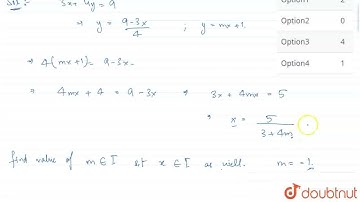 Sol : 3x + 4y = 9
⇒ y = 9-3x / 4 ; y = mx+1.
⇒ 4(mx+1) = 9-3x.
= 4mx + 4 = 9-3x ⇒ 3x + 4mx = 5
⇒ x = 5 / 3+4m
find value of m ∈ I st x ∈ I as well. m = -1.
Option1 2
Option2 0
Option3 4
Option4 1
doubtnut